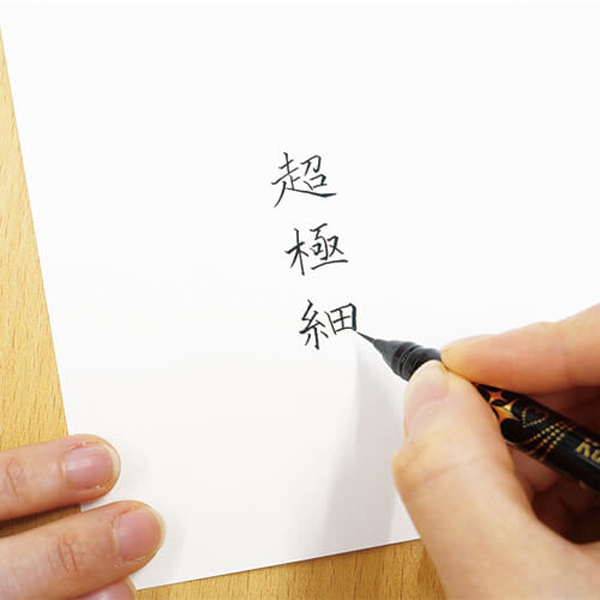 超極細